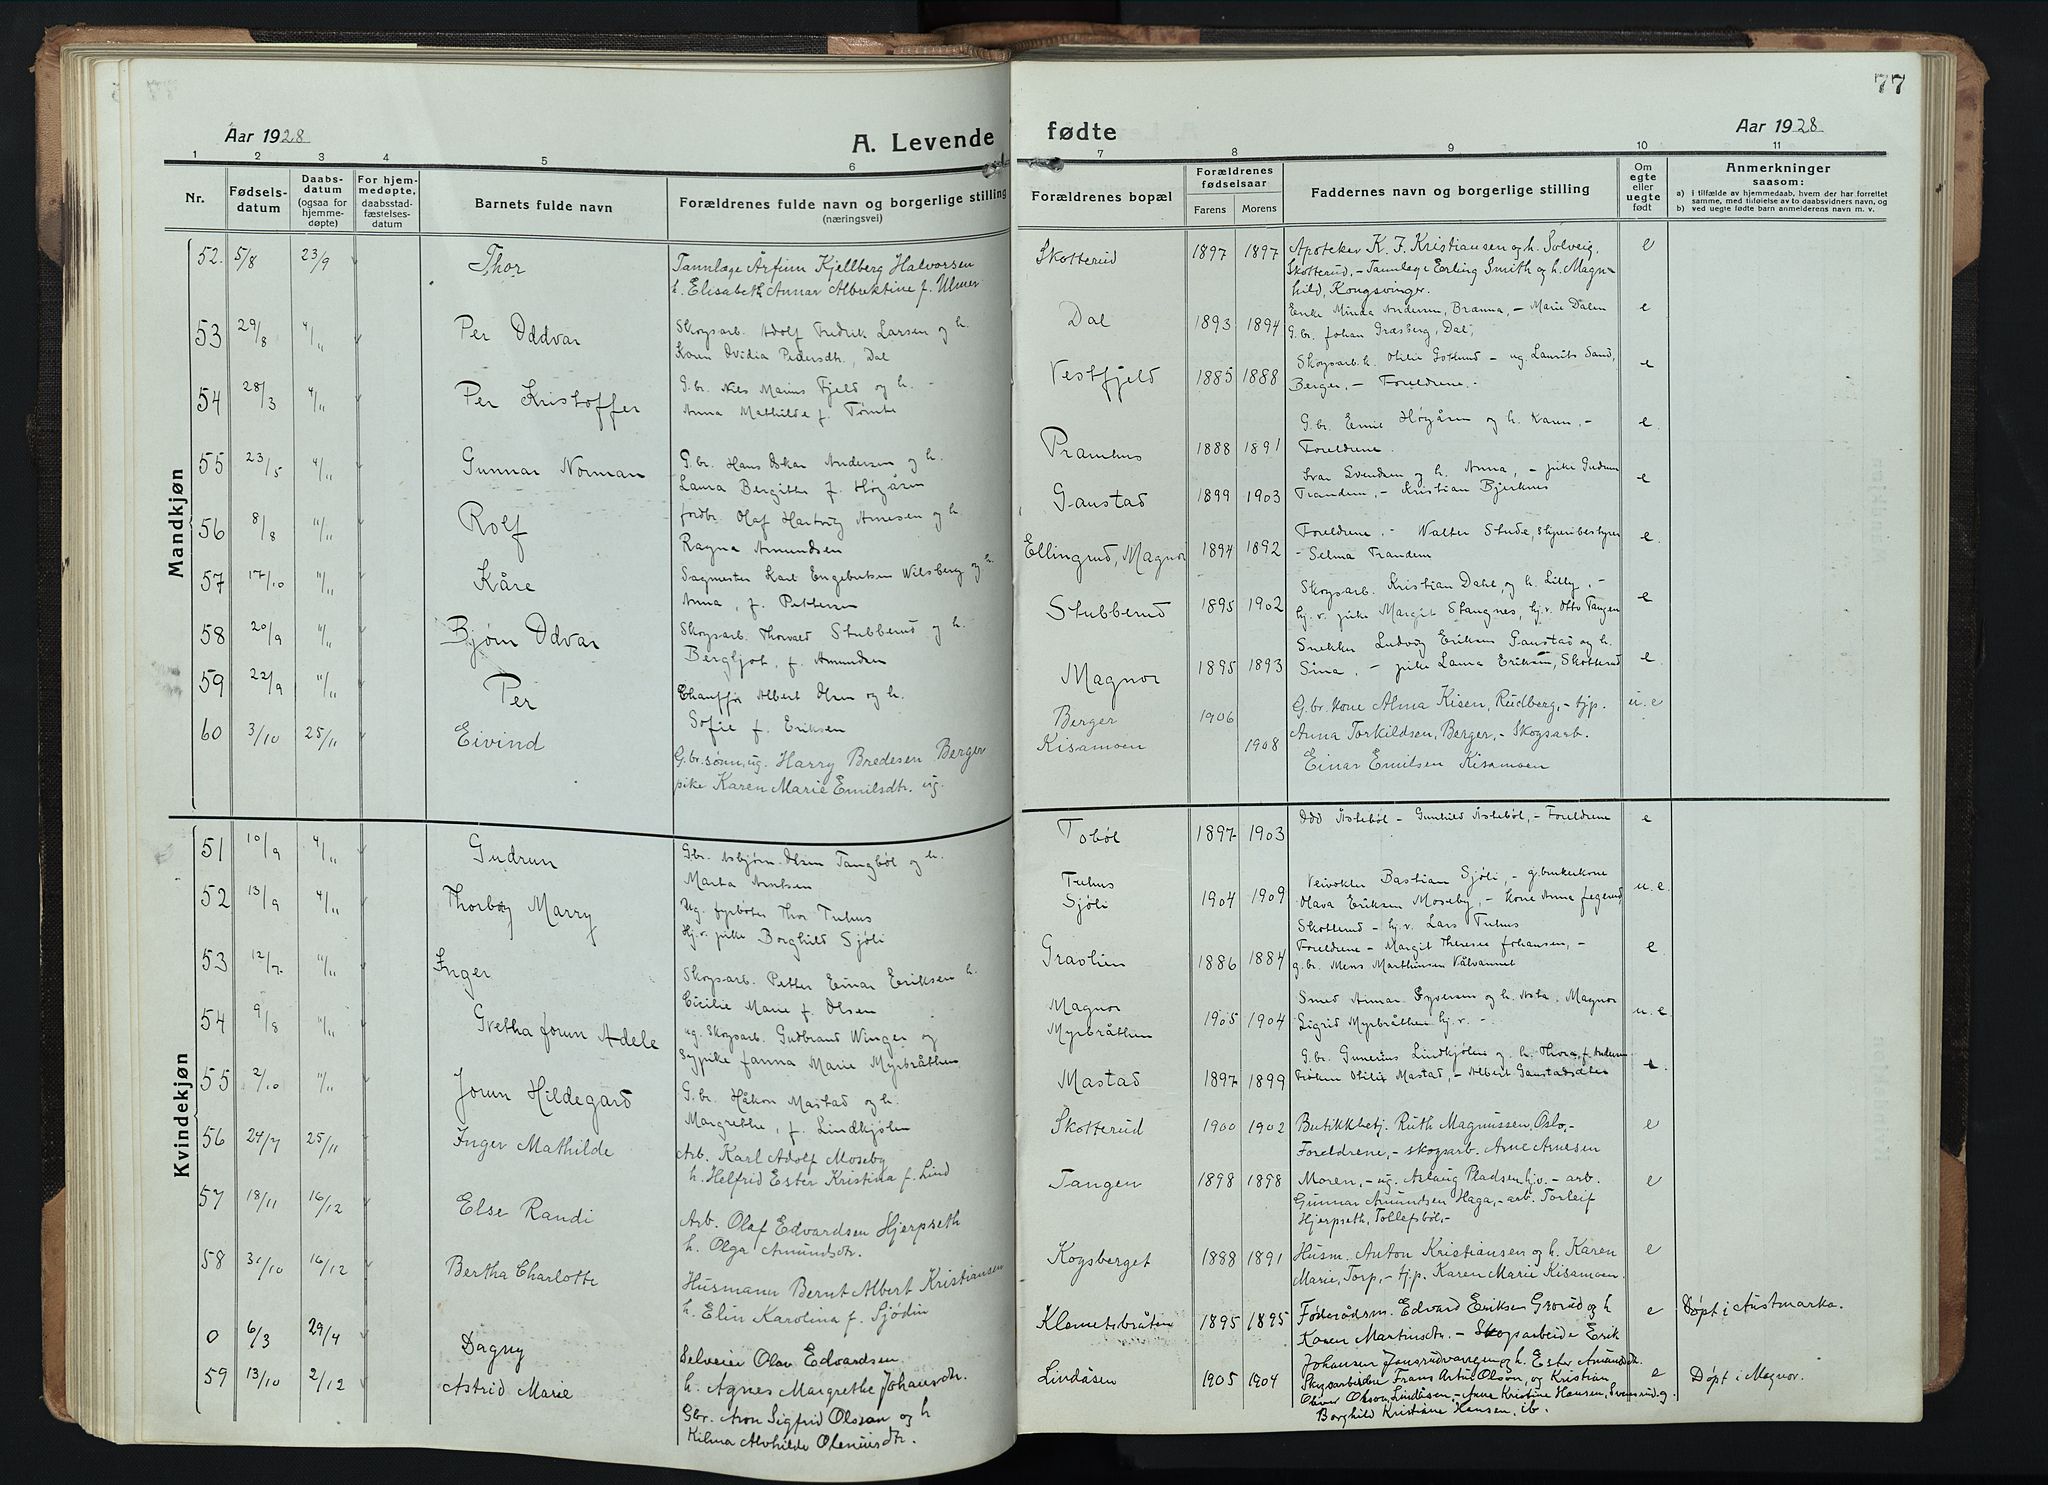 77
Aar 1928
A. Levende fødte
Aar 1928
1 2 3 4 5 6 7 8 9 10 11
Nr.
Fødsels-
datum
Daabs-
datum
(ogsaa for
hjemme-
døpte)
For hjem-
medøpte,
daabsstad-
fæstelses-
datum
Barnets fulde navn
Forældrenes fulde navn og borgerlige stilling
(næringsvei)
Forældrenes bopæl
Forældrenes
fødselsaar
Farens Morens
Faddernes navn og borgerlige stilling
Om
egte
eller
uegte
født
Anmerkninger
saasom:
a) i tilfælde av hjemmedaab, hvem der har forrettet
samme, med tilføielse av to daabsvidners navn, og
b) ved uegte fødte barn anmelderens navn m. v.
Mandkjøn
52. 5/8 23/9 Thor
Tannlæge Arfinn Kjellberg Halvorsen
h. Elisabeth Annar Albrektine f. Ulmer
Skotterud 1897 1897
Apoteker K. F. Kristiansen og h. Solveig,
Skotterud, - Tannlæge Erling Smith og h. Magn-
hild, Kongsvinger.
e
53 29/8 4/11 Per Oddvar
Skogsarb. Adolf Fredrik Larsen og h.
Karen Ovidia Pedersdtr., Dal
Dal 1893 1894
Enke Minda Andersen, Brænna, - Marie Dalen
G.br. Johan Græsberg, Dal,
e
54 28/3 4/11 Per Kristoffer
G.br. Nils Marius Fjeld og h. -
Anna Mathilde f. Tømte
Vestfjeld 1885 1888
Skogsarb. h. Otilie Gotlund - ug. Laurits Sand,
Berger, - Foreldrene. -
e
55 23/5 4/11 Gunnar Norman
G.br. Hans Oskar Andersen og h.
Laura Bergithe f. Høgåsen
Pramhus 1888 1891
G.br. Emil Høgåsen og h. Karen, -
Foreldrene.
e.
56 8/8 11/11 Rolf
Jordbr. Olaf Hartvig Arnesen og h.
Ragna Amundsen
Gaustad 1899 1903
Ivar Svendsen og h. Anna, - pike Gudrun
Trandem, - Kristian Bjerknes
e
57 17/10 11/11 Kåre
Sagmester Karl Engebretsen Wilsberg og h.
Anna, f. Pettersen
Ellingrud, Magnor 1894 1892
Foreldrene. Walter Stude, styreribestyrer
- Selma Trandem
e.
58 20/9 11/11 Bjørn Odvar
Skogsarb. Thorvald Stubberud og h.
Bergljot, f. Amundsen
Stubberud 1895 1902
Skogsarb. Kristian Dahl, og h. Lilly, -
hj.v. pike Margit Stangnes, hj.v. Otto Tangen
e
59 22/9 11/11 Per
Chauffør Albert Olsen og h.
Sofie f. Eriksen
Magnor 1895 1893
Snekker Ludvig Eriksen Gaustad og h.
Sina, - pike Laura Eriksen, Skotterud
e.
60 3/10 25/11 Eivind
G.br.sønn, ug. Harry Bredesen Berger
pike Karen Marie Emilsdtr. ug.
Berger
Kisamoen
1906
1908
G.br. kone Alma Kisen, Rudberg, - tjp.
Anna Torkildsen, Berger, - Skogsarb.
Einar Emilsen Kisamoen
u.e
Kvindekjøn
51 10/9 4/11 Gudrun
Gbr. Asbjørn Olsen Tangbøl og h.
Marta Arntsen
Tobøl 1897 1903
Odd Åstebøl - Gunhild Åstebøl, - Foreldrene
e
52 13/9 4/11 Thorbjg Marry
Ug. fyrbøter Thor Tuhus
Hj.v. pike Borghild Sjøli
Tuhus
Sjøli
1904 1909
Veivokter Bastian Sjøli, - g.brukerkone
Olava Eriksen Moseby, - kone Anna Jegerud
Skotterud - hj.v. Lars Tuhus
u.e.
53 12/7 11/11 Inger
Skogsarb. Petter Einar Eriksen h.
Cicilie Marie f. Olsen
Graolien 1886 1884
Foreldrene - Margit Therese Johansen, -
g.br. Mens Marthinsen Vålvannet
e
54 9/8 11/11 Gretha Jorun Adele
ug. Skogsarb. Gudbrand Winger og
Sypike Janna Marie Myrbråthen
Magnor
Myrbråthen
1905 1904
Smed Annar Syversen og h. Asta, Magnor
Sigrid Myrbråthen hj.v. -
u.e
55 2/10 11/11 Jorun Hildegard
G.br. Håkon Mastad og h.
Margrethe, f. Lindkjølen
Mastad 1897 1899
G.br. Gunerius Lindkjølen og h. Thora, f. Andersen
Frøken Otilie Mastad, - Albert Gaustadsæter
e.
56 24/7 25/11 Inger Mathilde
Arb. Karl Adolf Moseby
h. Helfrid Ester Kristina f. Lind
Skotterud 1900 1902
Butikkbetj. Ruth Magnussen, Oslo, -
Foreldrene, - skogsarb. Arne Arnesen
e
57 18/11 16/12 Else Randi
Arb. Olaf Edvardsen Hjerpseth
h. Olga Amundsdtr.
Tangen 1898 1898
Moren, - ug. Aslaug Pladsen hj.v. - arb.
Gunnar Amundsen Haga, - arb. Torleif
Hjerpseth, Tollefsbøl, -
e
58 31/10 16/12 Bertha Charlotte
Husmann Bernt Albert Kristiansen
h. Elin Karolina f. Sjödin
Kogsberget 1888 1891
Husm. Anton Kristiansen og h. Karen
Marie, Torp, - tj.p. Karen Marie Kisamoen.
e
0 6/3 29/4 Dagny
Selveier Olav Edvardsen
h. Agnes Margrethe Johansdtr.
Klemetsbråten 1895 1895
Føderådsm. Edvard Eriksen Grorud og h
Karen Martinsdtr. - Skogsarbeide Erik
Johansen Jonsrudvangen og h. Ester Amundsdtr.
e
Døpt i Austmarka.
59 13/10 2/12 Astrid Marie
Gbr. Aron Sigfrid Olsson og h
Kilma Alvhilde Oleniusdtr.
Lindåsen 1905 1904
Skogsarbeider Frans Artur Olson, og Kristian
Oliver Olsson, Lindåsen, - Anne Kristine Hansen, Svensrud og
Borghild Kristiane Hansen, ib.
e
Døpt i Magnor.